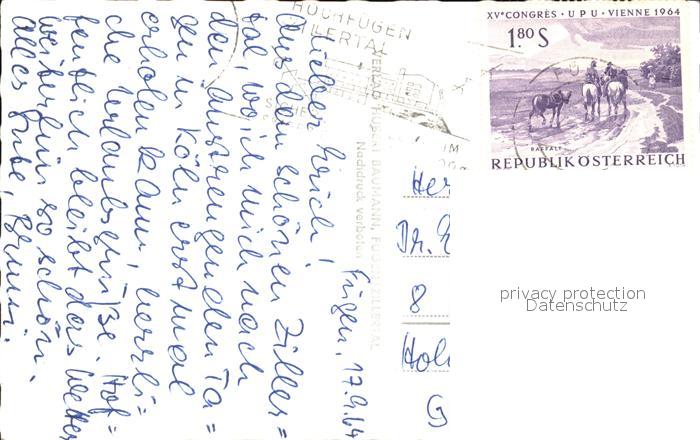 HOCHFÜGEN
ZILLERTAL
XV.CONGRÈS · UPU · VIENNE 1964
1.80 S
RAFFALT
REPUBLIK ÖSTERREICH
Fügen, 17.9.64
Lieber Erich!
Aus dem schönen Ziller=
tal, wo ich mich nach
den anstrengenden Ta=
gen in Köln erst mal
erholen kann, herzli=
che Urlaubsgrüße. Hof=
fentlich bleibt das Wetter
weiterhin so schön.
Alles Gute,
VERLAG HUBERT BAUMANN, FÜGEN, ZILLERTAL
Nachdruck verboten
Her
Dr. E
8
Hol
G
privacy protection
Datenschutz